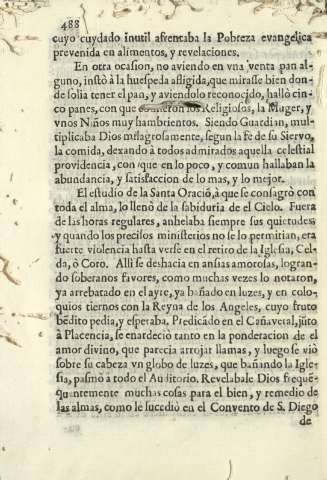 488
cuyo cuydado inutil afrentaba la Pobreza evangelica
prevenida en alimentos, y revelaciones.
En otra ocasion, no aviendo en vna venta pan al-
guno, instò à la huespeda afligida, que mirasse bien don-
de solia tener el pan, y aviendolo reconocido, hallò cin-
co panes, con que comieron los Religiosos, la Muger, y
vnos Niños muy hambrientos. Siendo Guardian, mul-
tiplicaba Dios milagrosamente, segun la fè de su Siervo,
la comida, dexando à todos admirados aquella celestial
providencia, con que en lo poco, y comun hallaban la
abundancia, y satisfaccion de lo mas, y lo mejor.
El estudio de la Santa Oraciõ, à que se consagrò con
toda el alma, lo llenò de la sabiduria de el Cielo. Fuera
de las horas regulares, anhelaba siempre sus quietudes;
y quando los precisos ministerios no se lo permitian, era
fuerte violencia hasta verse en el retiro de la Iglesia, Cel-
da, ò Coro. Alli se deshacia en ansias amorosas, logran-
do soberanos favores, como muchas vezes lo notaron,
ya arrebatado en el ayre, ya bañado en luzes, y en colo-
quios tiernos con la Reyna de los Angeles, cuyo fruto
bẽdito pedia, y esperaba. Predicãdo en el Cañaveral, jũto
à Placencia, se enardeciò tanto en la ponderacion de el
amor divino, que parecia arrojar llamas, y luego se viò
sobre su cabeza vn globo de luzes, que bañando la Igle-
sia, pasmò à todo el Auditorio. Revelabale Dios frequẽ-
quentemente muchas cosas para el bien, y remedio de
las almas, como le sucediò en el Convento de S. Diego
de